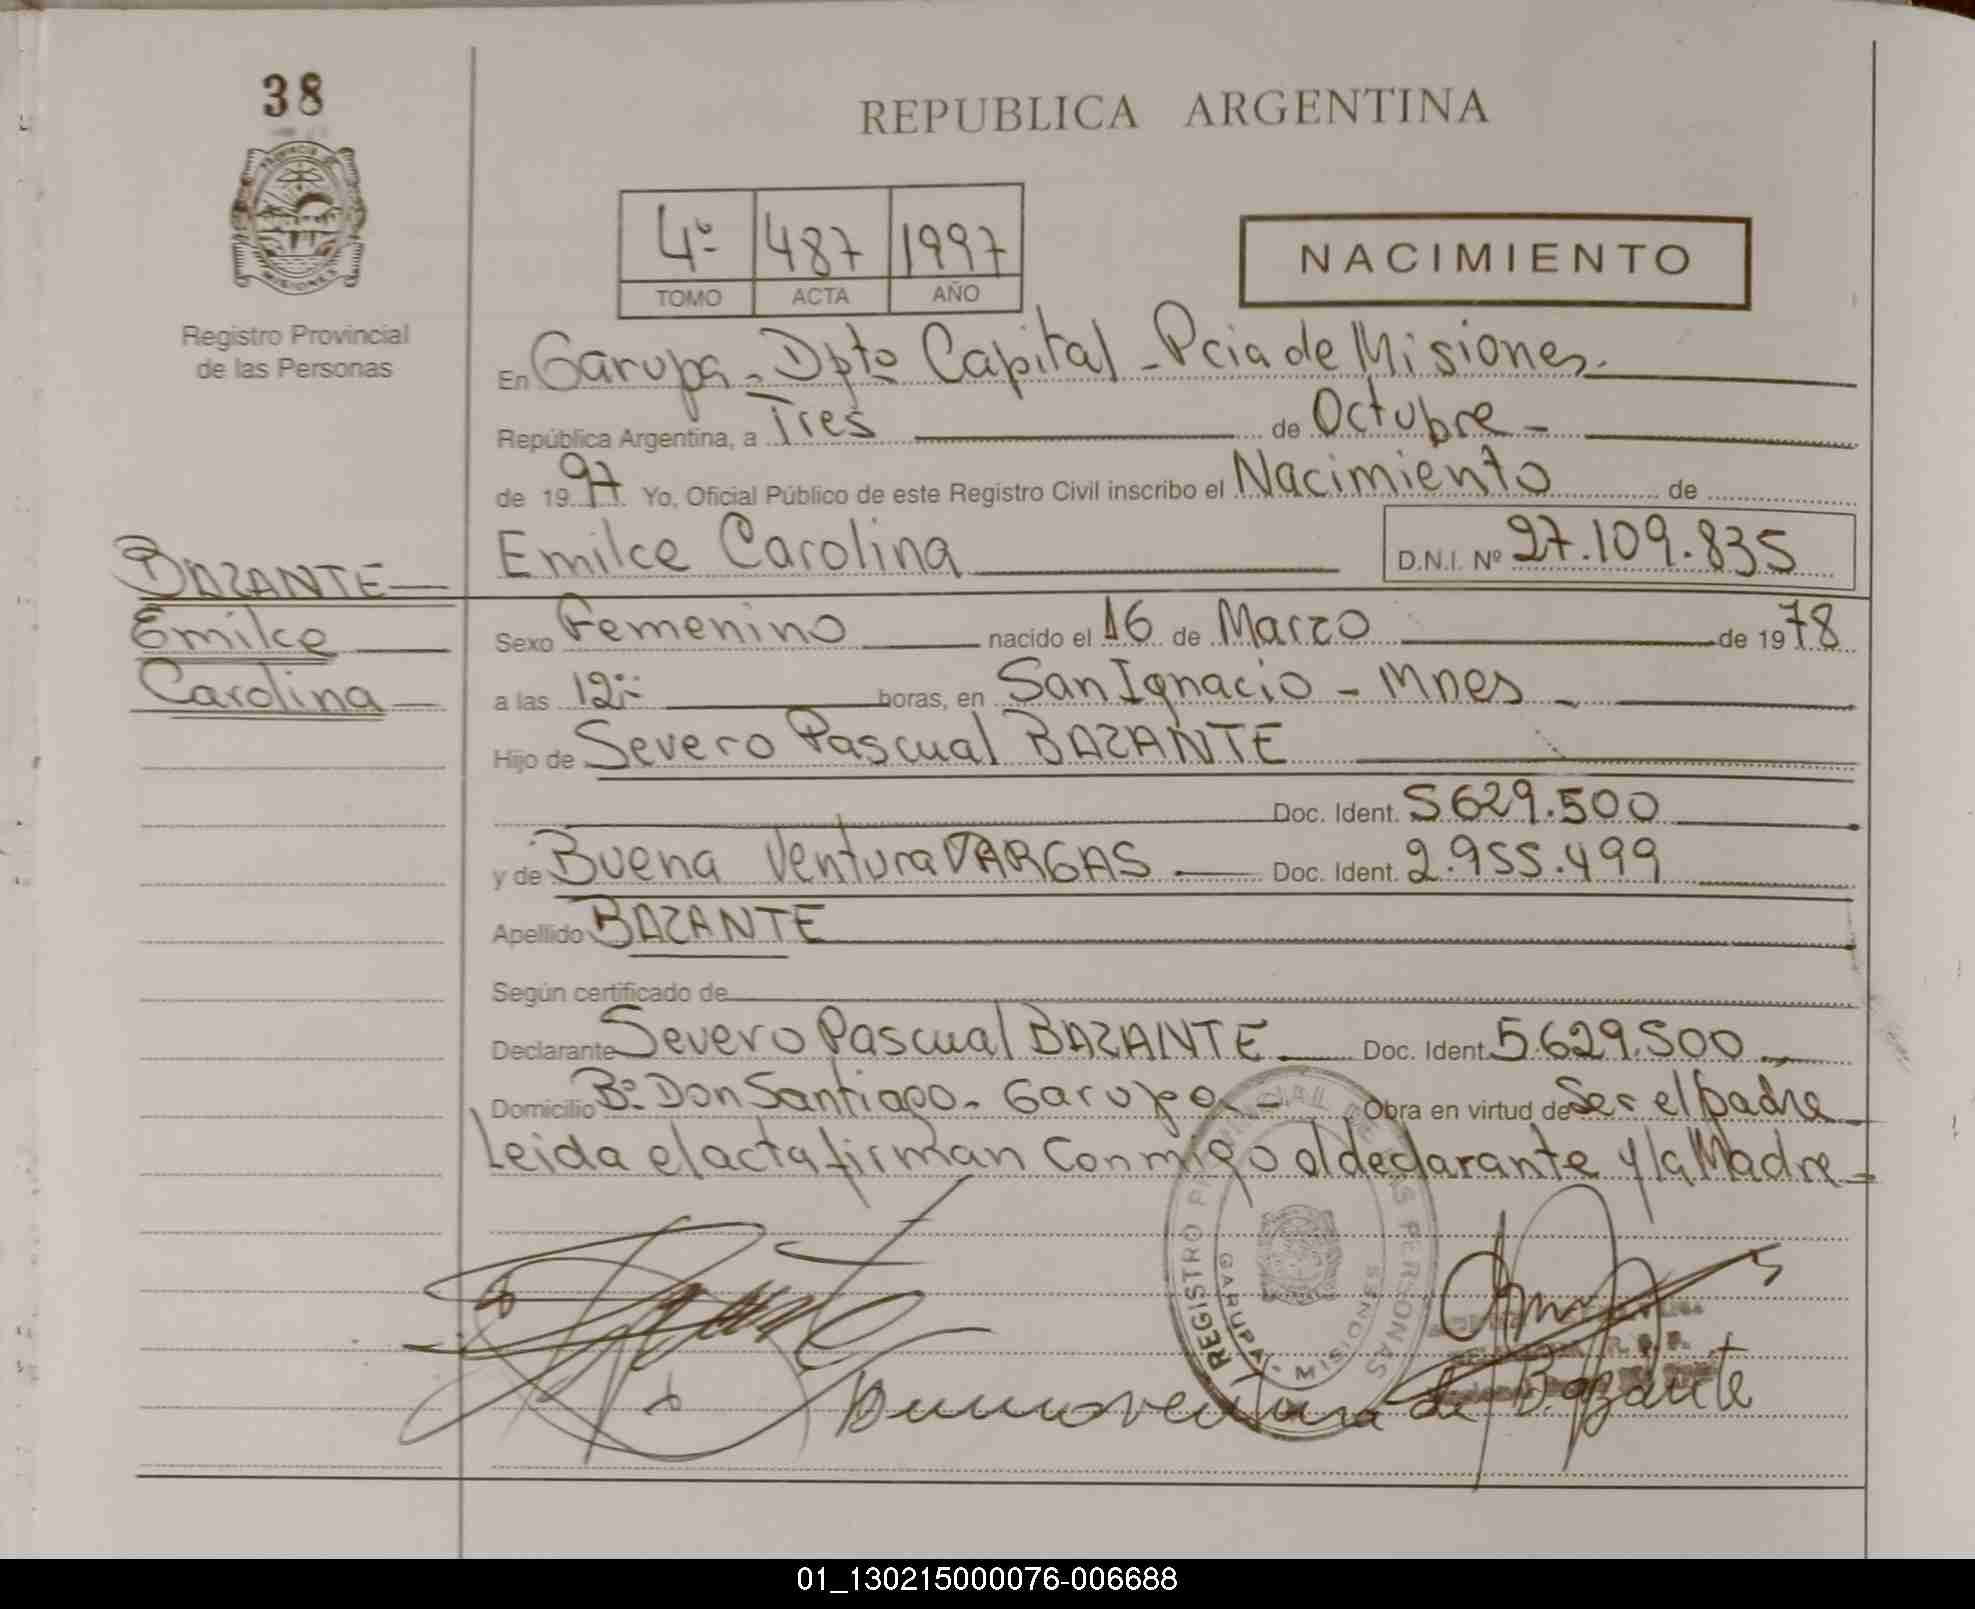 38
PROVINCIA DE
MISIONES
Registro Provincial
de las Personas
REPUBLICA ARGENTINA
4º 487 1997
TOMO ACTA AÑO
NACIMIENTO
En Garupa - Dpto Capital - Pcia de Misiones.
República Argentina, a Tres de Octubre -
de 1997 Yo, Oficial Público de este Registro Civil inscribo el Nacimiento de
Emilce Carolina D.N.I. Nº 27.109.835
BAZANTE
Emilce
Carolina
Sexo Femenino nacido el 16 de Marzo de 1978
a las 12:- horas, en San Ignacio - Mnes -
Hijo de Severo Pascual BAZANTE
Doc. Ident. 5629.500
y de Buena Ventura VARGAS Doc. Ident. 2.955.499
Apellido BAZANTE
Según certificado de
Declarante Severo Pascual BAZANTE Doc. Ident. 5.629.500
Domicilio Bº Don Santiago - Garupa - Obra en virtud de Ser el padre
Leida el acta firman conmigo el declarante y la Madre -
REGISTRO PROVINCIAL DE LAS PERSONAS
GARUPA - MISIONES
Buenaventura de Bazante
01_130215000076-006688